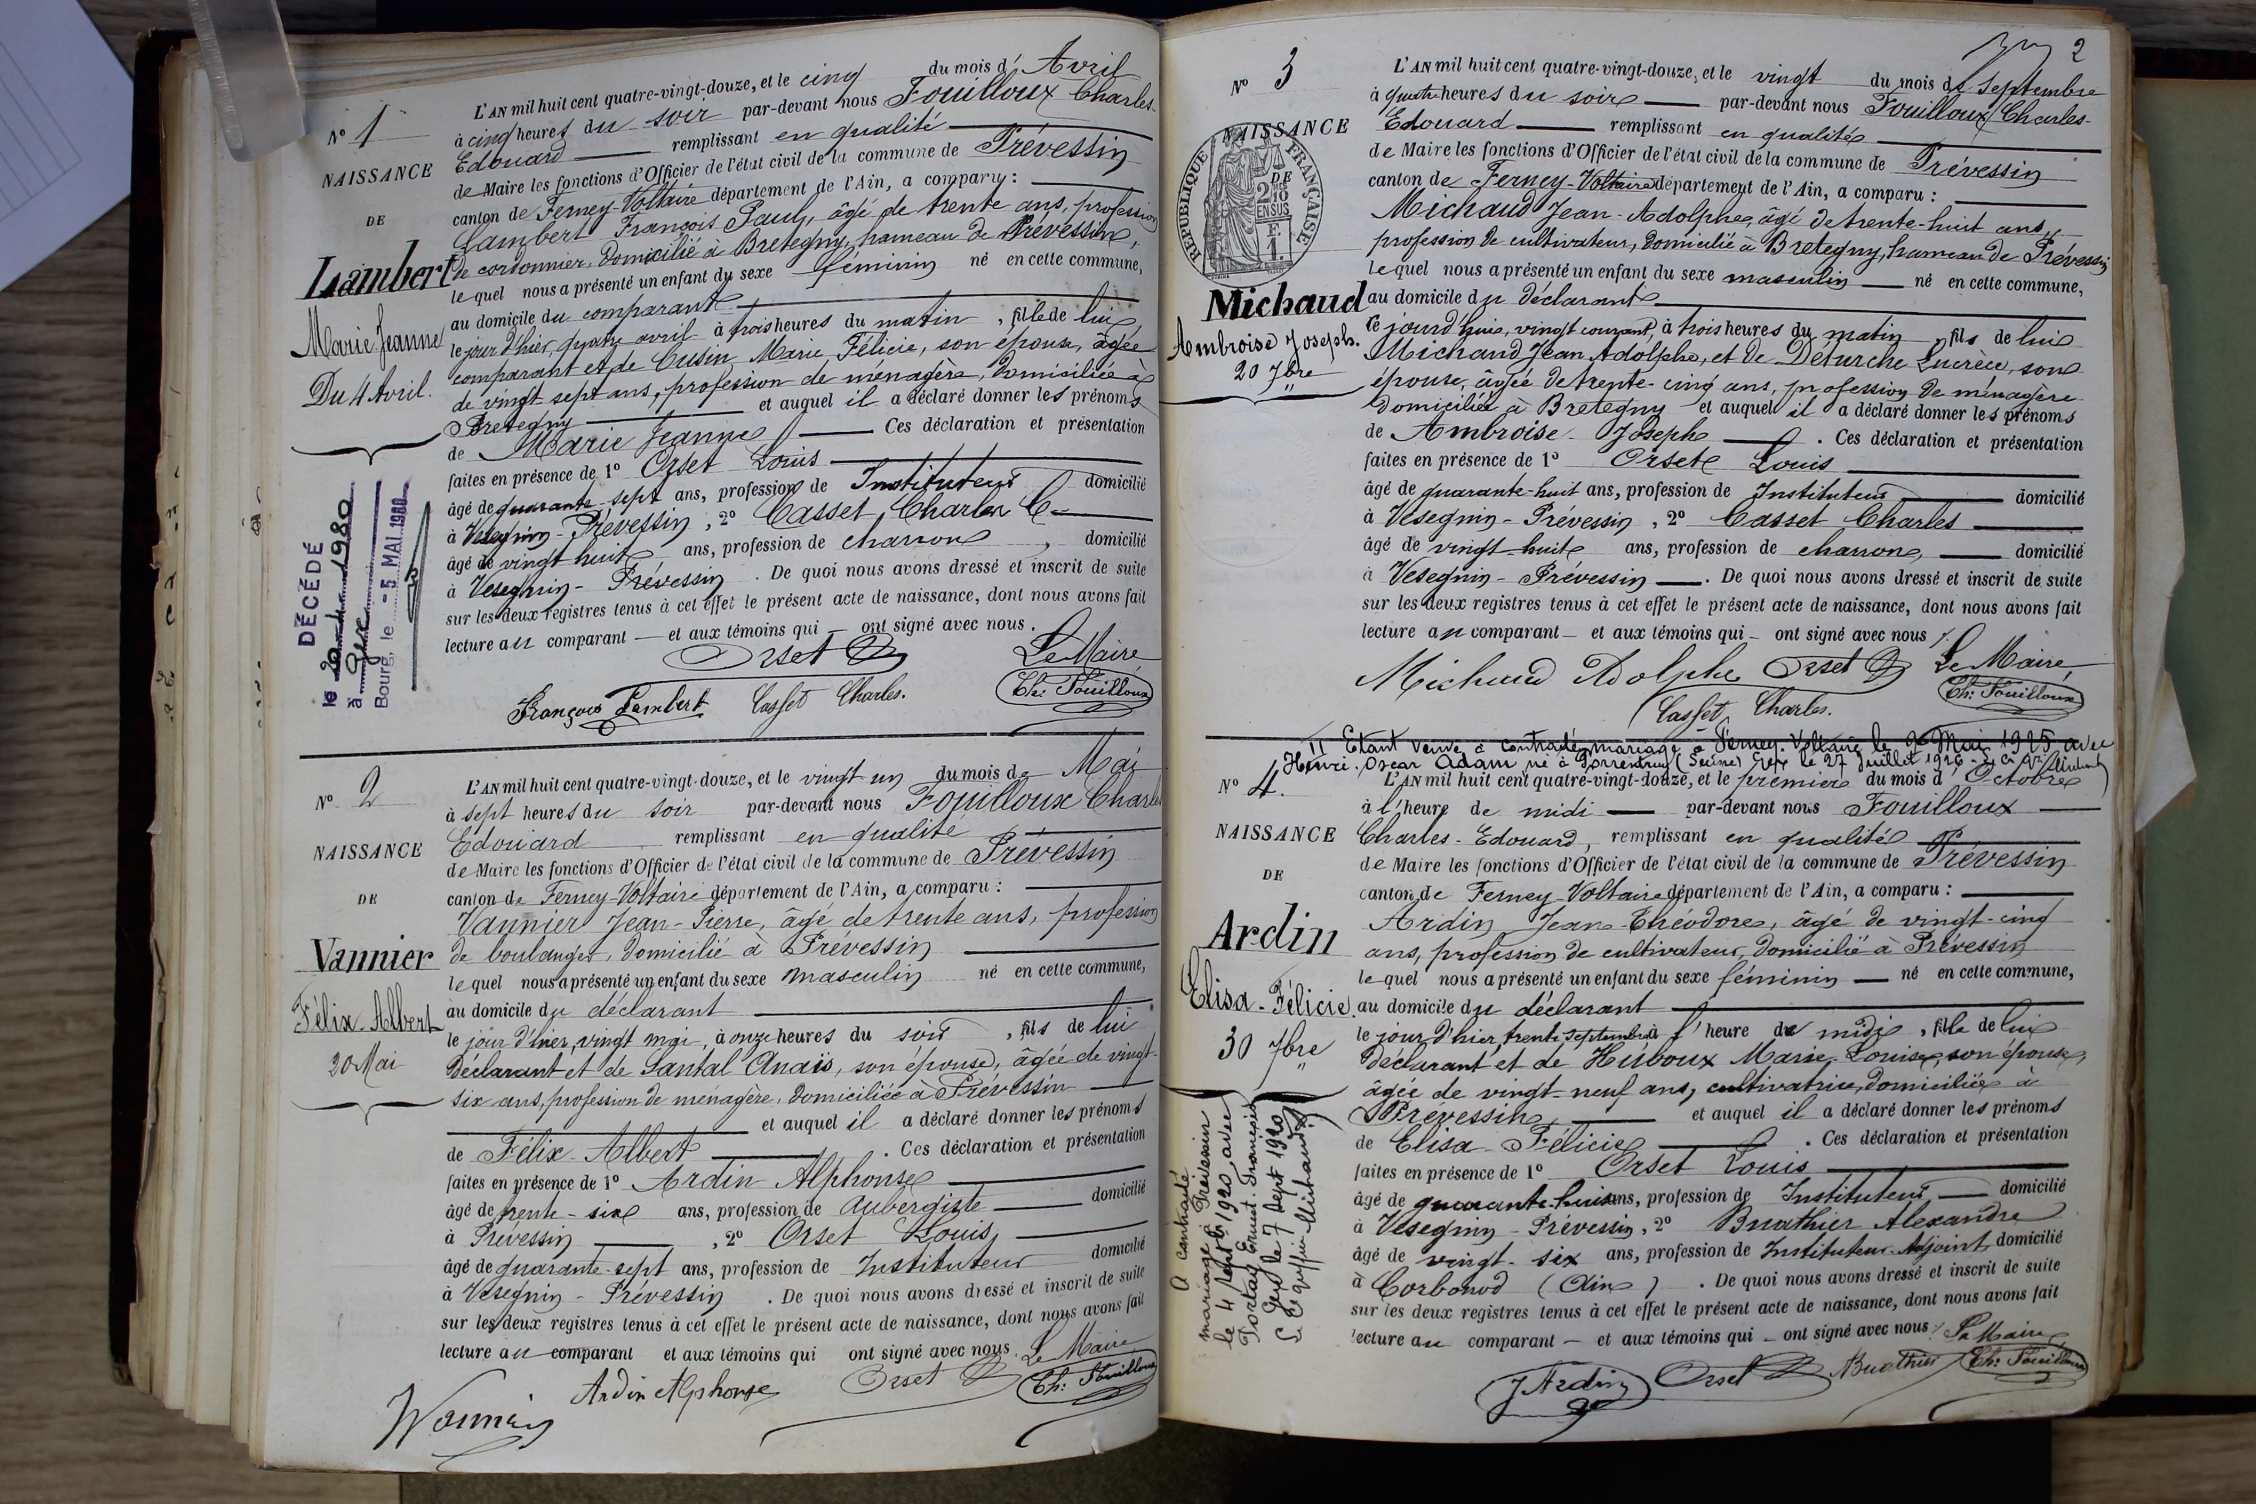 L'AN mil huit cent quatre-vingt-douze, et le cinq du mois d' Avril
à cinq heures du soir par-devant nous Fouilloux Charles-
Edouard remplissant en qualité
de Maire les fonctions d'Officier de l'état civil de la commune de Prévessin
canton de Ferney-Voltaire département de l'Ain, a comparu :
Lambert François Paul, âgé de trente ans, profession
de cordonnier, domicilié à Bretegny, hameau de Prévessin,
lequel nous a présenté un enfant du sexe féminin né en cette commune,
au domicile du comparant
le jour d'hier, quatre avril à trois heures du matin, fille de lui
comparant et de Cusin Marie Félicie, son épouse, âgée
de vingt sept ans, profession de ménagère, domiciliée à
Bretegny et auquel il a déclaré donner les prénoms
de Marie Jeanne Ces déclaration et présentation
faites en présence de 1° Orset Louis
âgé de quarante-sept ans, profession de Instituteur domicilié
à Vesegnin-Prévessin, 2° Casset Charles
âgé de vingt huit ans, profession de charron, domicilié
à Vesegnin-Prévessin. De quoi nous avons dressé et inscrit de suite
sur les deux registres tenus à cet effet le présent acte de naissance, dont nous avons fait
lecture au comparant — et aux témoins qui — ont signé avec nous.
Orset Le Maire
François Lambert Casset Charles. Ch: Fouilloux
N° 1
NAISSANCE
DE
Lambert
Marie Jeanne
Du 4 Avril.
DÉCÉDÉ
le 20-4-1980
à Gex
Bourg, le -5 MAI 1980
N° 2
NAISSANCE
DE
Vannier
Félix-Albert
20 Mai
L'AN mil huit cent quatre-vingt-douze, et le vingt-un du mois de Mai
à sept heures du soir par-devant nous Fouilloux Charles
Edouard remplissant en qualité
de Maire les fonctions d'Officier de l'état civil de la commune de Prévessin
canton de Ferney-Voltaire département de l'Ain, a comparu :
Vannier Jean-Pierre, âgé de trente ans, profession
de boulanger, domicilié à Prévessin
lequel nous a présenté un enfant du sexe masculin né en cette commune,
au domicile du déclarant
le jour d'hier, vingt mai, à onze heures du soir, fils de lui
déclarant et de Santal Anaïs, son épouse, âgée de vingt-
six ans, profession de ménagère, domiciliée à Prévessin
et auquel il a déclaré donner les prénoms
de Félix-Albert. Ces déclaration et présentation
faites en présence de 1° Ardin Alphonse
âgé de trente-six ans, profession de Aubergiste domicilié
à Prévessin, 2° Orset Louis,
âgé de quarante-sept ans, profession de Instituteur domicilié
à Vesegnin-Prévessin. De quoi nous avons dressé et inscrit de suite
sur les deux registres tenus à cet effet le présent acte de naissance, dont nous avons fait
lecture au comparant et aux témoins qui ont signé avec nous. Le Maire
Vannier Ardin Alphonse Orset Ch: Fouilloux
2
N° 3
NAISSANCE
DE
RÉPUBLIQUE FRANÇAISE
Michaud
Ambroise Joseph.
20 7bre
L'AN mil huit cent quatre-vingt-douze, et le vingt du mois de Septembre
à quatre heures du soir par-devant nous Fouilloux Charles-
Edouard remplissant en qualité
de Maire les fonctions d'Officier de l'état civil de la commune de Prévessin
canton de Ferney-Voltaire département de l'Ain, a comparu :
Michaud Jean-Adolphe, âgé de trente-huit ans,
profession de cultivateur, domicilié à Bretegny, hameau de Prévessin
lequel nous a présenté un enfant du sexe masculin né en cette commune,
au domicile du déclarant
ce jourd'hui, vingt courant, à trois heures du matin, fils de lui
Michaud Jean Adolphe, et de Déturche Lucrèce, son
épouse, âgée de trente-cinq ans, profession de ménagère
domiciliée à Bretegny et auquel il a déclaré donner les prénoms
de Ambroise-Joseph. Ces déclaration et présentation
faites en présence de 1° Orset Louis
âgé de quarante-huit ans, profession de Instituteur domicilié
à Vesegnin-Prévessin, 2° Casset Charles
âgé de vingt-huit ans, profession de charron, domicilié
à Vesegnin-Prévessin. De quoi nous avons dressé et inscrit de suite
sur les deux registres tenus à cet effet le présent acte de naissance, dont nous avons fait
lecture au comparant — et aux témoins qui — ont signé avec nous
Michaud Adolphe Orset Le Maire
Casset Charles. Ch: Fouilloux
Etant veuve a contracté mariage à Ferney-Voltaire le 9 Mai 1925 avec
Henri-Oscar Adam né à Porrentruy (Suisse) Gex le 27 Juillet 1926
N° 4.
NAISSANCE
DE
Ardin
Elisa-Félicie.
30 7bre
A contracté
mariage à Prévessin
le 4 Sept 1920, avec
Portaz Ernest-François
Gex le 7 Sept 1920
Le Greffier
L'AN mil huit cent quatre-vingt-douze, et le premier du mois d' Octobre
à l'heure de midi par-devant nous Fouilloux
Charles-Edouard, remplissant en qualité
de Maire les fonctions d'Officier de l'état civil de la commune de Prévessin
canton de Ferney-Voltaire département de l'Ain, a comparu :
Ardin Jean-Théodore, âgé de vingt-cinq
ans, profession de cultivateur, domicilié à Prévessin
lequel nous a présenté un enfant du sexe féminin né en cette commune,
au domicile du déclarant
le jour d'hier, trente septembre à l'heure de midi, fille de lui
déclarant et de Huboux Marie-Louise, son épouse,
âgée de vingt-neuf ans, cultivatrice, domiciliée à
Prévessin, et auquel il a déclaré donner les prénoms
de Elisa-Félicie. Ces déclaration et présentation
faites en présence de 1° Orset Louis
âgé de quarante-huit ans, profession de Instituteur, domicilié
à Vesegnin-Prévessin, 2° Buathier Alexandre
âgé de vingt-six ans, profession de Instituteur-Adjoint, domicilié
à Corbonod (Ain). De quoi nous avons dressé et inscrit de suite
sur les deux registres tenus à cet effet le présent acte de naissance, dont nous avons fait
lecture au comparant — et aux témoins qui — ont signé avec nous Le Maire
J Ardin Orset Buathier Ch: Fouilloux